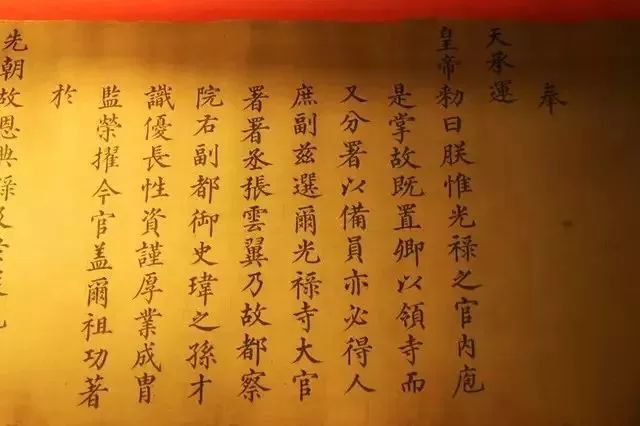 奉
天承運
皇帝勑曰朕惟光祿之官內庖
是掌故既置卿以領寺而
又分署以備員亦必得人
庶副兹選爾光祿寺大官
署署丞張雲翼乃故都察
院右副都御史瑋之孫才
識優長性資謹厚業成胄
監榮擢今官盖爾祖功著
於
先朝故恩典祿及